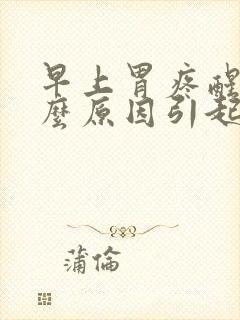 早上胃疼醒
麼原因引起
蒲倫